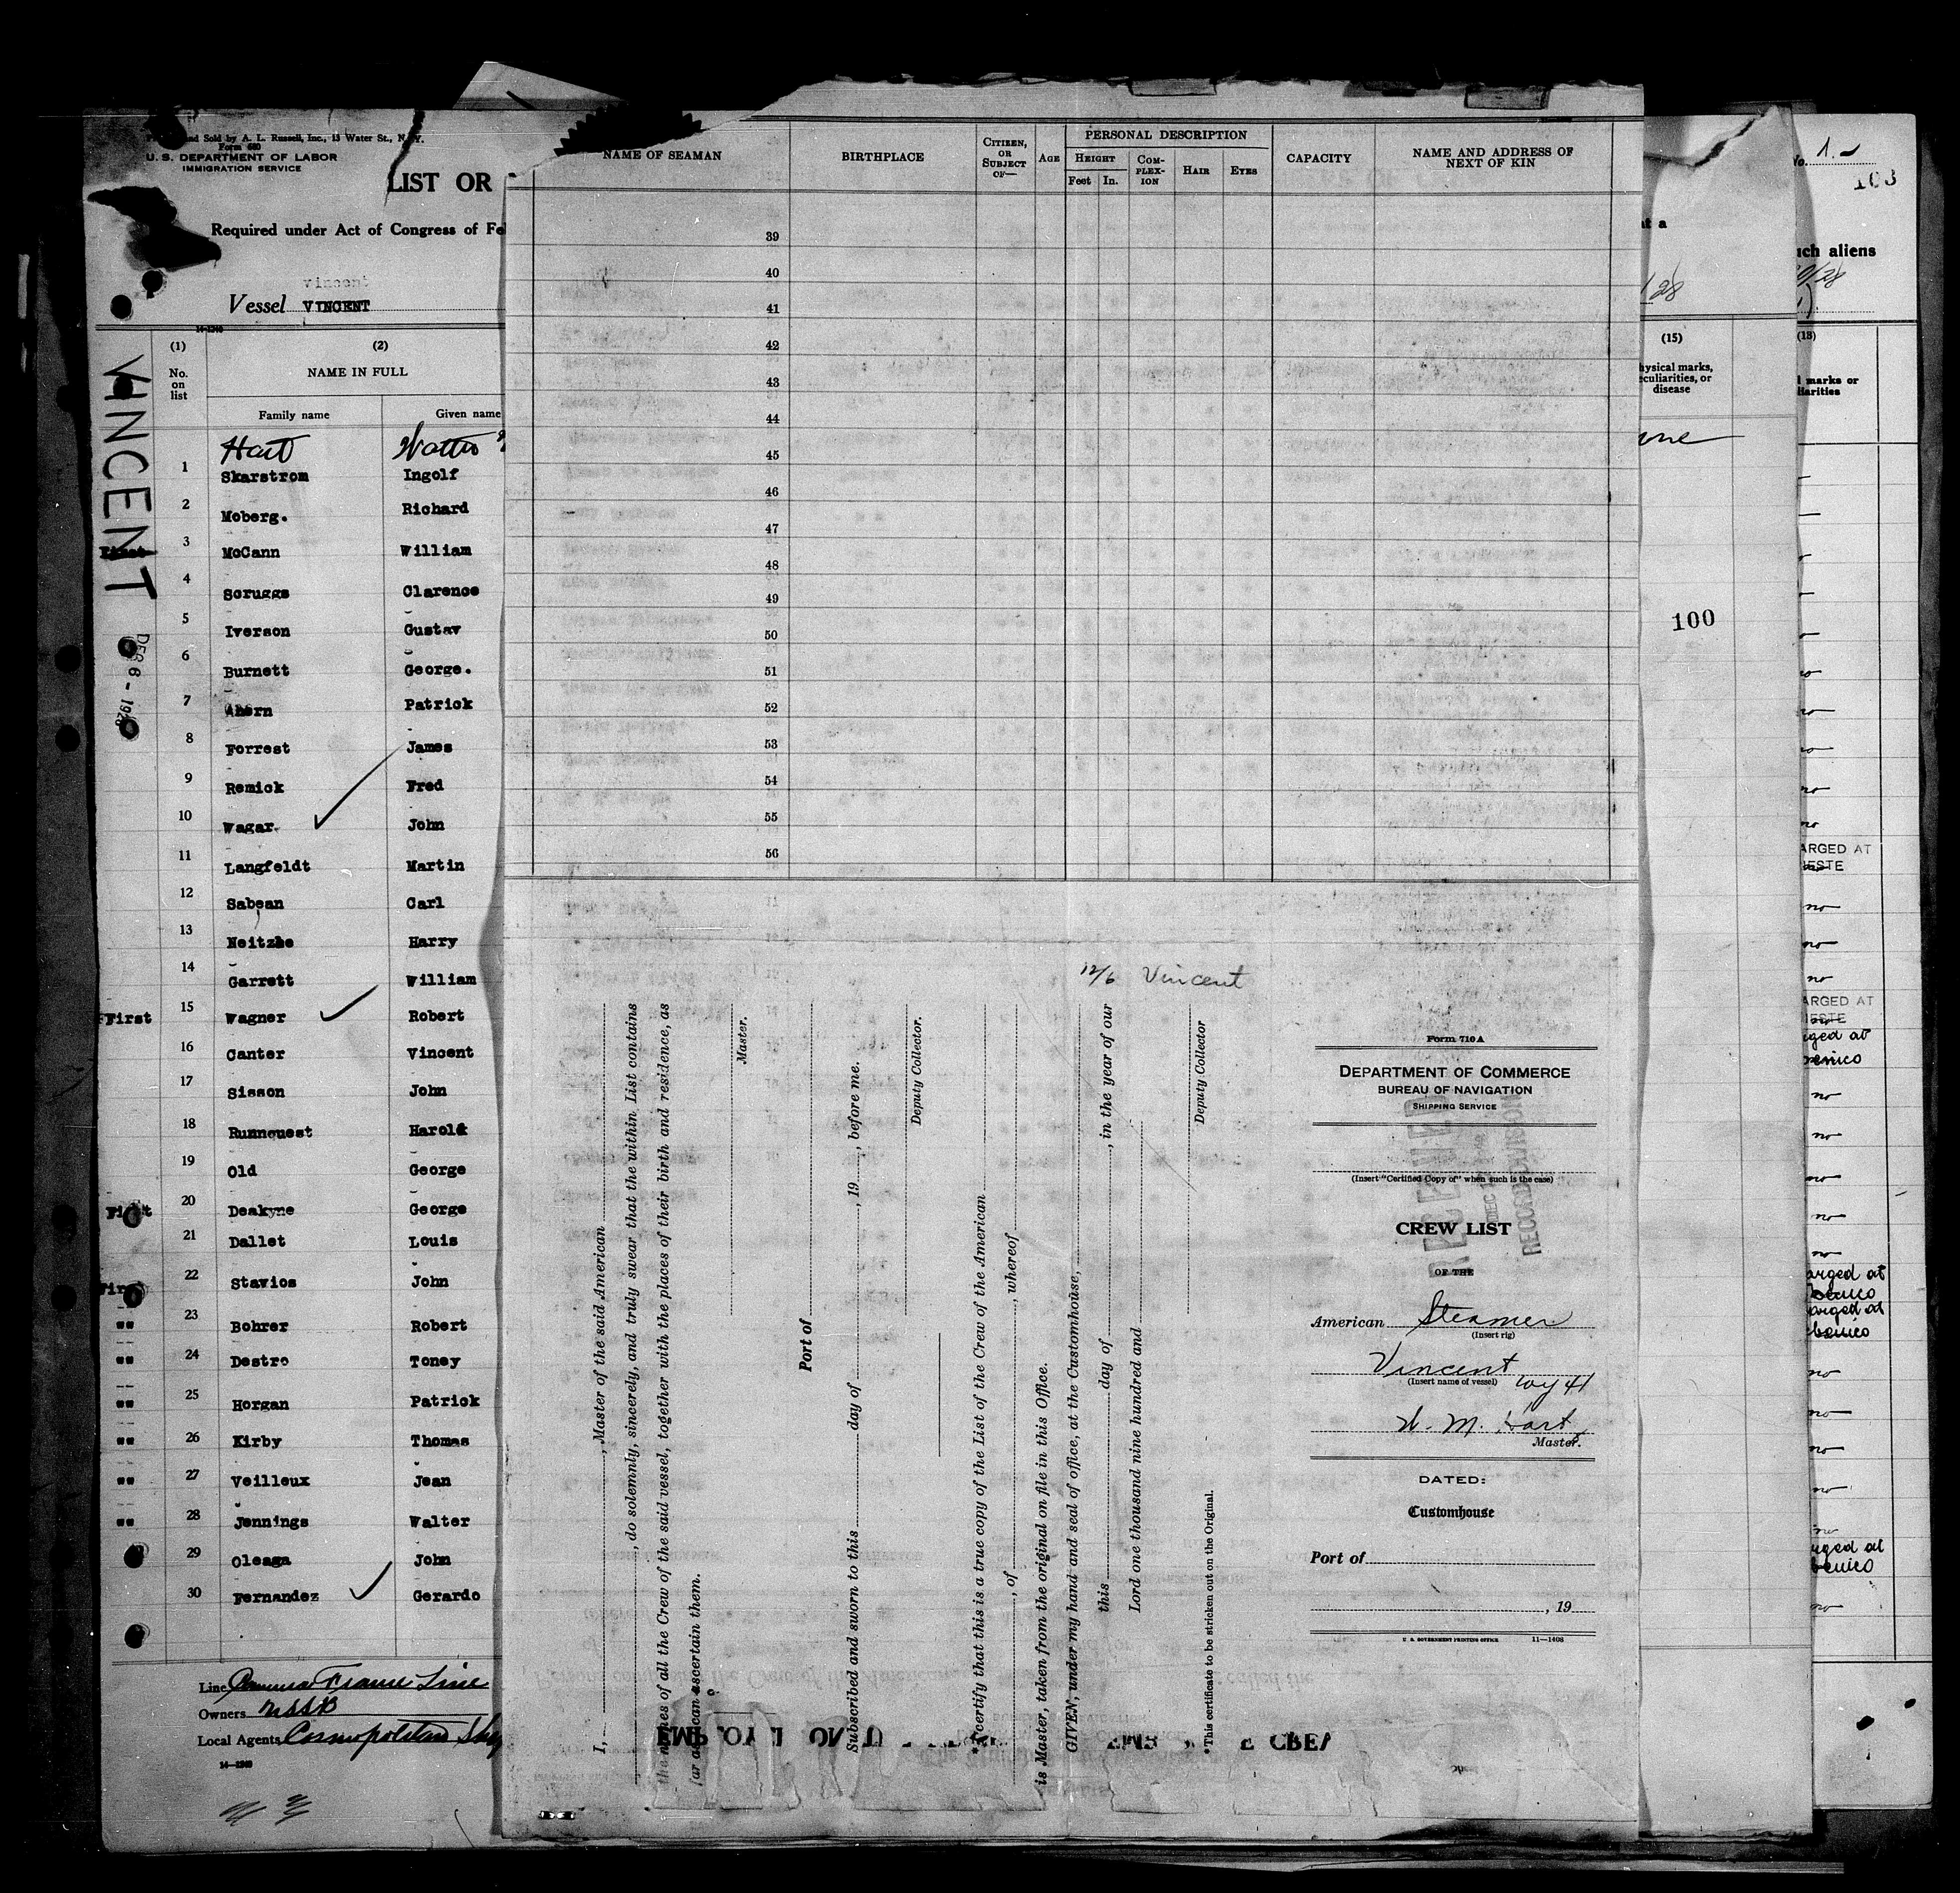 Sold by A. L. Russell, Inc., 13 Water St., N. Y.
Form 680
U. S. DEPARTMENT OF LABOR
IMMIGRATION SERVICE
LIST OR
Required under Act of Congress of Fe
vincent
Vessel VINCENT
14-1240
VINCENT
DEC 6 - 1928
(1) (2)
No. on list
NAME IN FULL
Family name Given name
Hart
1 Skarstrom Ingolf
2 Moberg. Richard
First 3 McCann William
4 Scruggs Clarence
5 Iverson Gustav
6 Burnett George.
7 Ahern Patrick
8 Forrest James
9 Remick Fred
10 Wagar. John
11 Langfeldt Martin
12 Sabean Carl
13 Neitzhe Harry
14 Garrett William
First 15 Wagner Robert
16 Canter Vincent
17 Sisson John
18 Runnquest Harold
19 Old George
First 20 Deakyne George
21 Dallet Louis
First 22 Stavios John
"" 23 Bohrer Robert
"" 24 Destro Toney
"" 25 Horgan Patrick
"" 26 Kirby Thomas
"" 27 Veilleux Jean
"" 28 Jennings Walter
29 Oleaga John
30 Fernandez Gerardo
Line France Line
Owners USSB
Local Agents Cosmopolitan
14-1240
NAME OF SEAMAN
BIRTHPLACE
CITIZEN, OR SUBJECT OF—
AGE
PERSONAL DESCRIPTION
HEIGHT
Feet In.
COM-PLEX-ION
HAIR
EYES
CAPACITY
NAME AND ADDRESS OF NEXT OF KIN
39
40
41
42
43
44
45
46
47
48
49
50
51
52
53
54
55
56
12/6 Vincent
I, , Master of the said American
, do solemnly, sincerely, and truly swear that the within List contains
the names of all the Crew of the said vessel, together with the places of their birth and residence, as
far as can ascertain them.
Master.
Port of
Subscribed and sworn to this day of , 19 , before me.
Deputy Collector.
certify that this is a true copy of the List of the Crew of the American
, of , whereof
is Master, taken from the original on file in this Office.
GIVEN, under my hand and seal of office, at the Customhouse,
this day of , in the year of our
Lord one thousand nine hundred and
Deputy Collector
*This certificate to be stricken out on the Original.
Form 710 A
DEPARTMENT OF COMMERCE
BUREAU OF NAVIGATION
SHIPPING SERVICE
(Insert "Certified Copy of" when such is the case)
RECEIVED
CREW LIST
OF THE
American Steamer
(Insert rig)
Vincent
(Insert name of vessel)
W. M. Hart
Master.
DATED:
Customhouse
Port of
, 19
U. S. GOVERNMENT PRINTING OFFICE 11—1408
at a
28
(15)
hysical marks, eculiarities, or disease
100
No. 1.
103
uch aliens
(13)
marks or
liarities
no
no
ARGED AT
IESTE
no
no
no
ARGED AT
IESTE
rged at
benico
no
no
no
no
no
arged at
benico
arged at
benico
no
no
no
no
no
rged at
benico
no